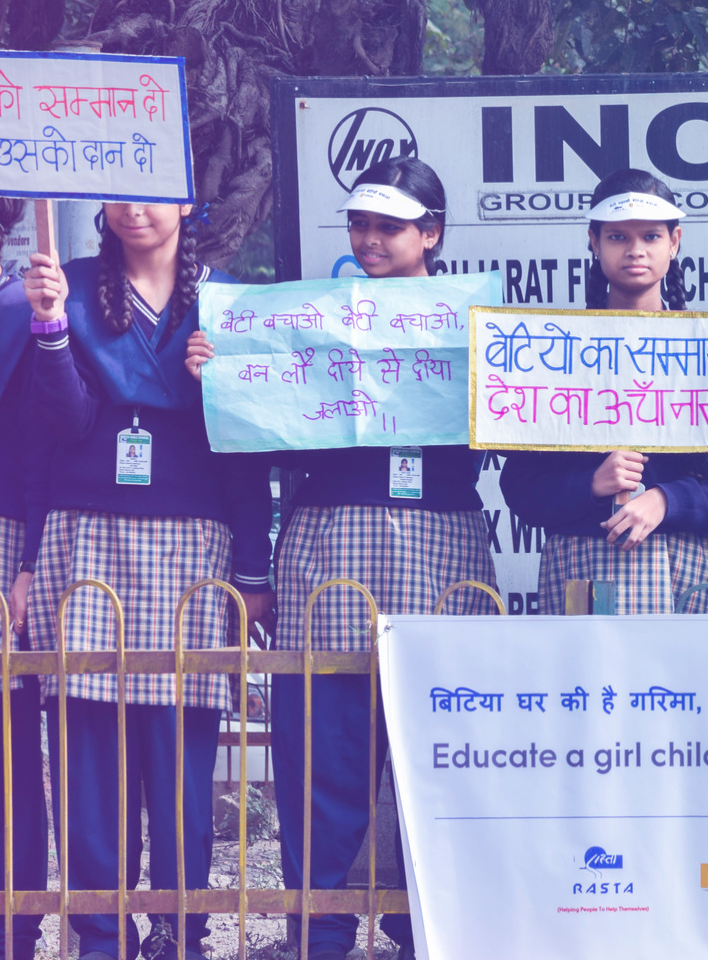 को सम्मान दो
उसको दान दो
INOX
INO
GROUP
GUJARAT
बेटी बचाओ बेटी बचाओ,
बन लौ दीये से दीया
जलाओ !!
बेटियो का सम्मा
देश का ऊचाँ
बिटिया घर की है गरिमा,
Educate a girl chil
रास्ता
RASTA
(Helping People To Help Themselves)